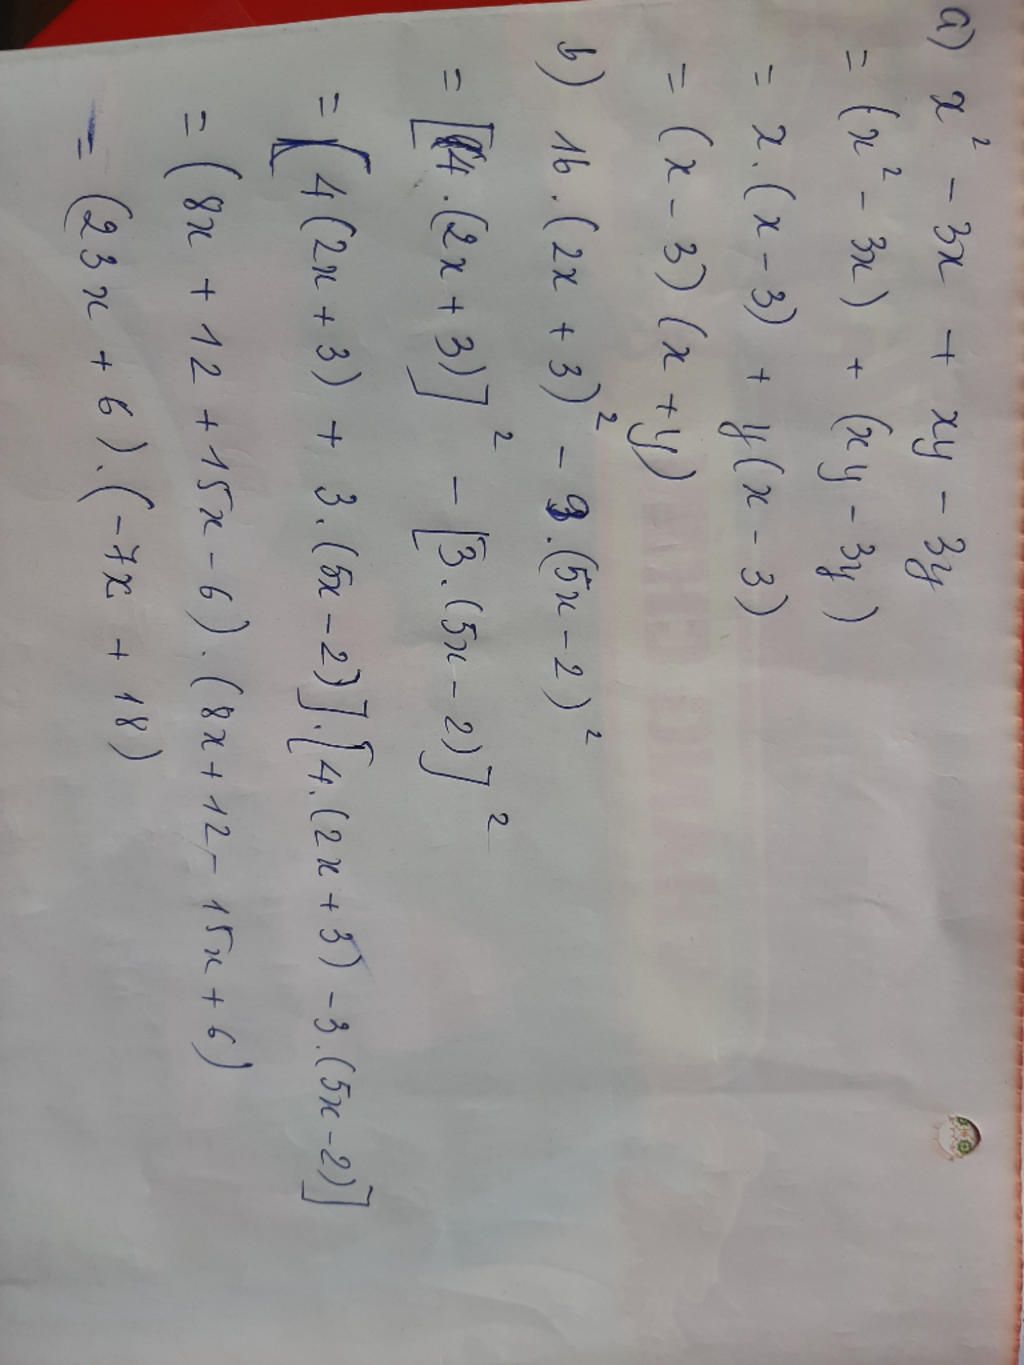 a) x² - 3x + xy - 3y
= (x² - 3x) + (xy - 3y)
= x.(x - 3) + y(x - 3)
= (x - 3)(x + y)
b) 16.(2x + 3)² - 9.(5x - 2)²
= [4.(2x + 3)]² - [3.(5x - 2)]²
= [4(2x + 3) + 3.(5x - 2)].[4.(2x + 3) - 3.(5x - 2)]
= (8x + 12 + 15x - 6).(8x + 12 - 15x + 6)
= (23x + 6).(-7x + 18)